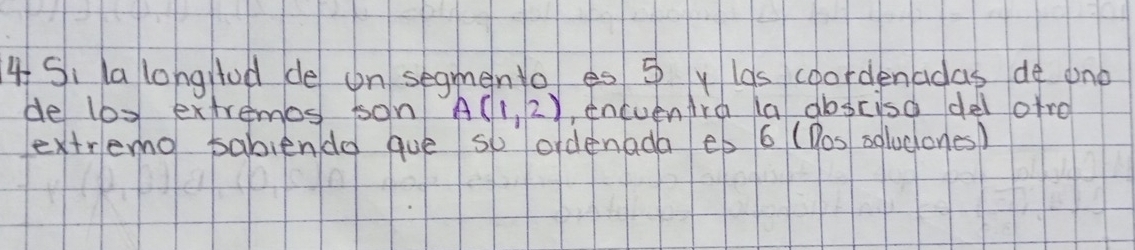 14- Si la longitud de un segmento es 5 y las coordenadas de uno
de los extremos son A(1,2), encuentra la abscisa del otro
extremo sabiendo que su ordenada es 6 (Dos soluciones)